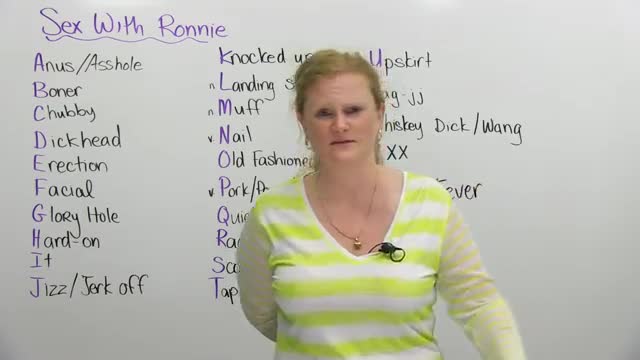 Sex With Ronnie
Anus/Asshole
Boner
Chubby
Dickhead
Erection
Facial
Glory Hole
Hard-on
It
Jizz/Jerk off
Knocked
n. Landing
n. Muff
v. Nail
Old Fashione
v. Pork/
Upskirt
-jj
Dick/Wang
XX